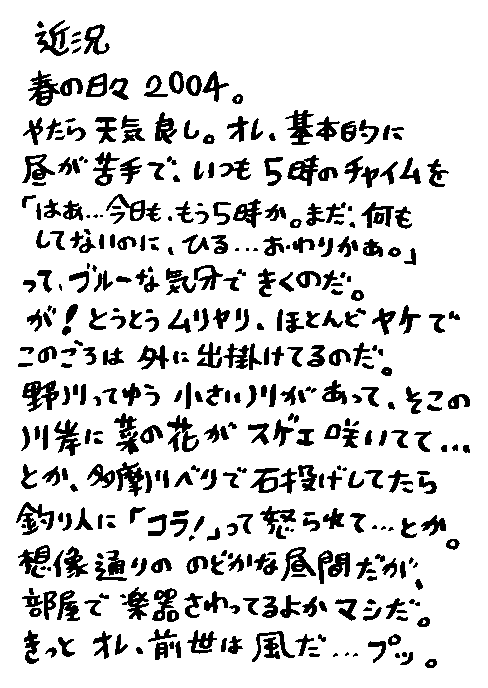 近況
春の日々 2004。
やたら天気良し。オレ、基本的に
昼が苦手で、いつも5時のチャイムを
「はあ…今日も、もう5時か。まだ、何も
してないのに、ひる…おわりかあ。」
って、ブルーな気分できくのだ。
が!とうとうムリヤリ、ほとんどヤケで
このごろは外に出掛けてるのだ。
野川ってゆう小さい川があって、そこの
川岸に菜の花がスゲエ咲いてて…
とか、多摩川ベリで石投げしてたら
釣り人に「コラ!」って怒られて…とか。
想像通りの のどかな昼間だが、
部屋で楽器さわってるよかマシだ。
きっとオレ、前世は風だ…プッ。